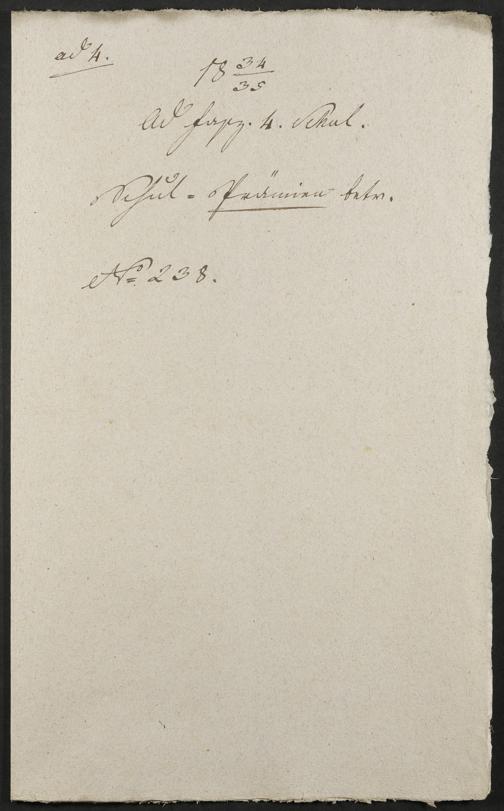 ad 4.
18 34/35
Ad fasz. 4. Schul.
Schul-Prämien betr.
No. 238.